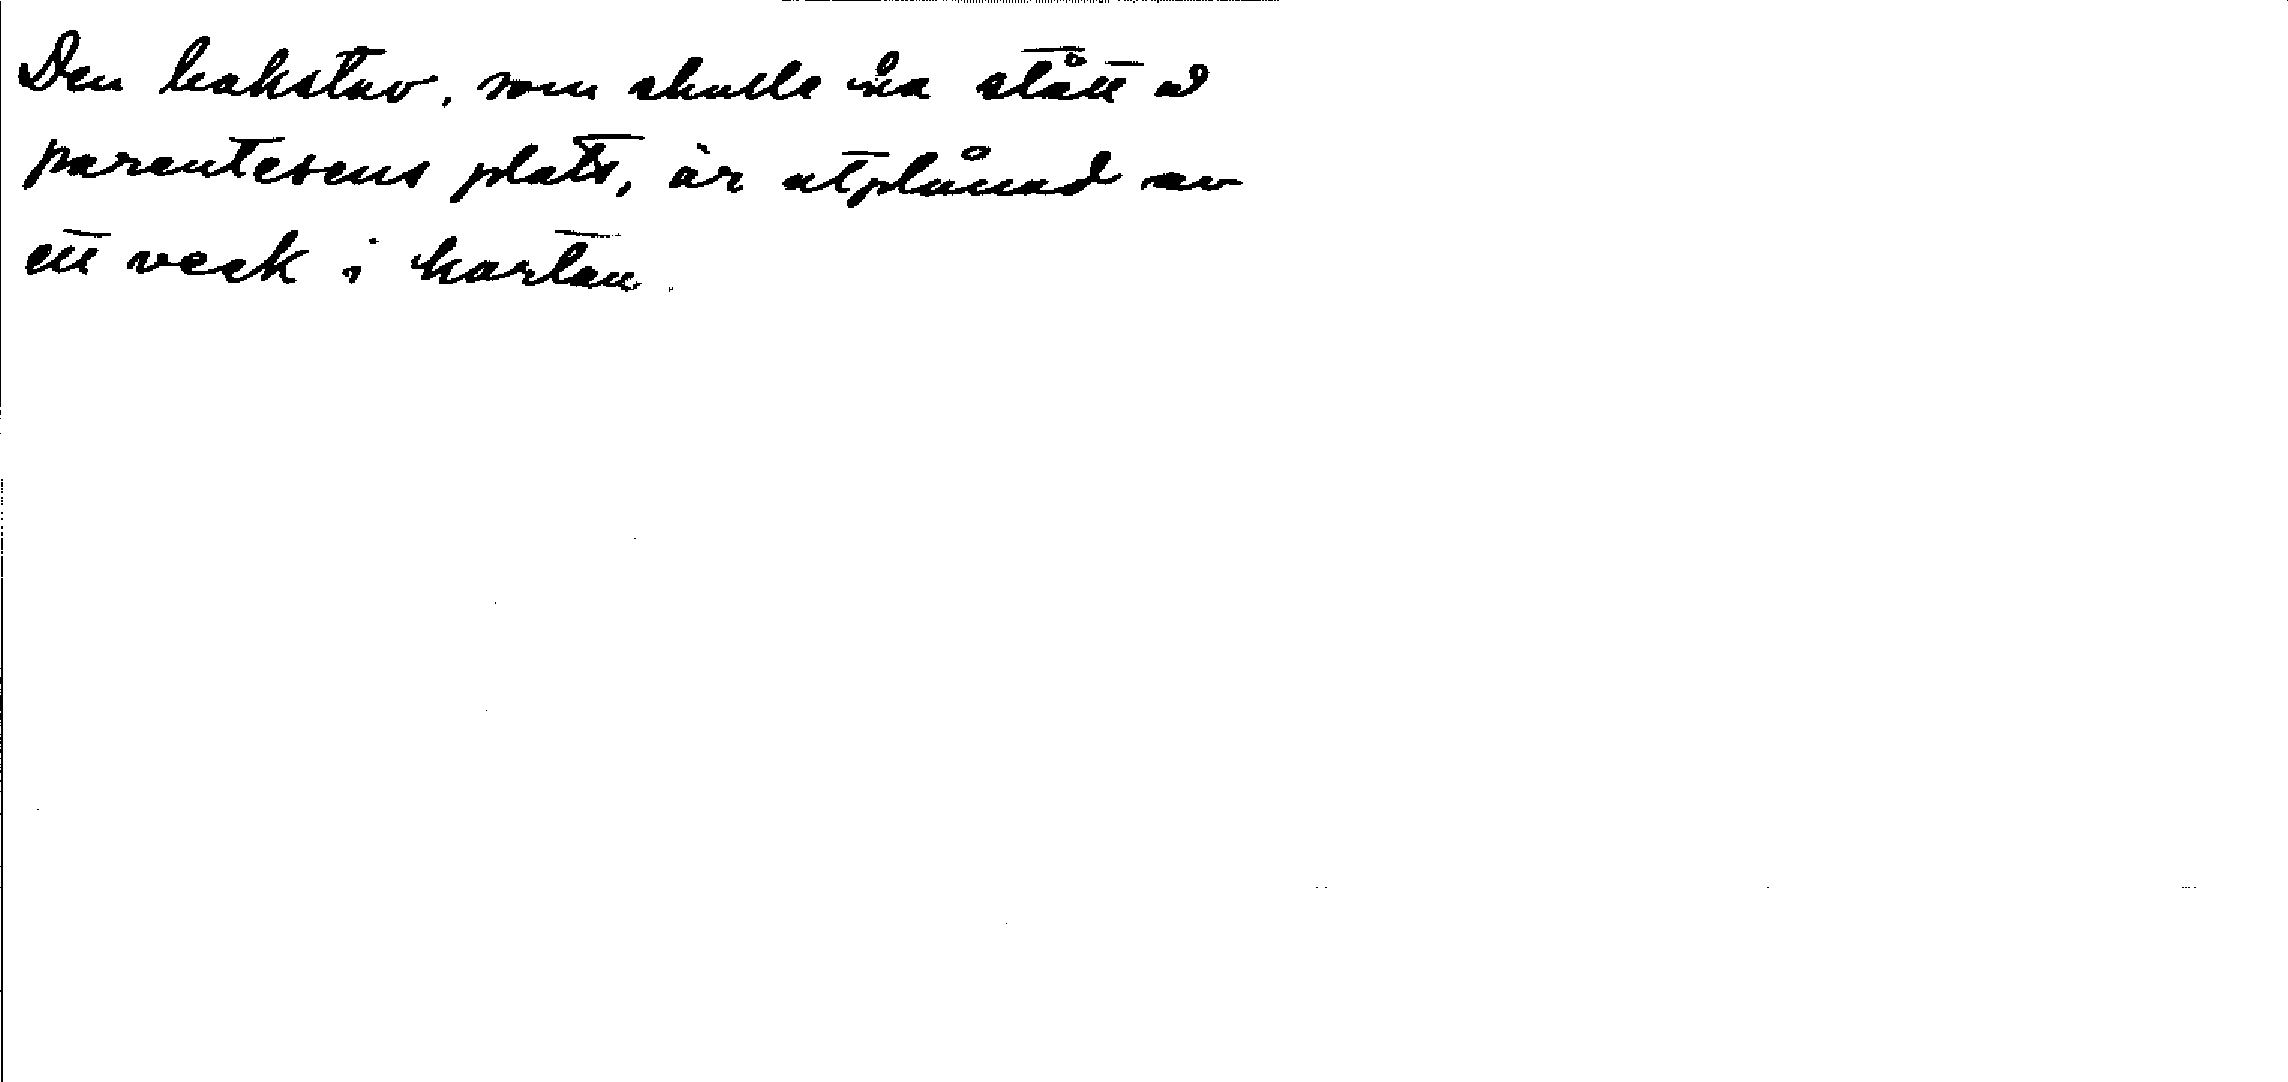 Den bokstav, som skulle ha stått å
parentesens plats, är utplånad av
ett veck i kartan.